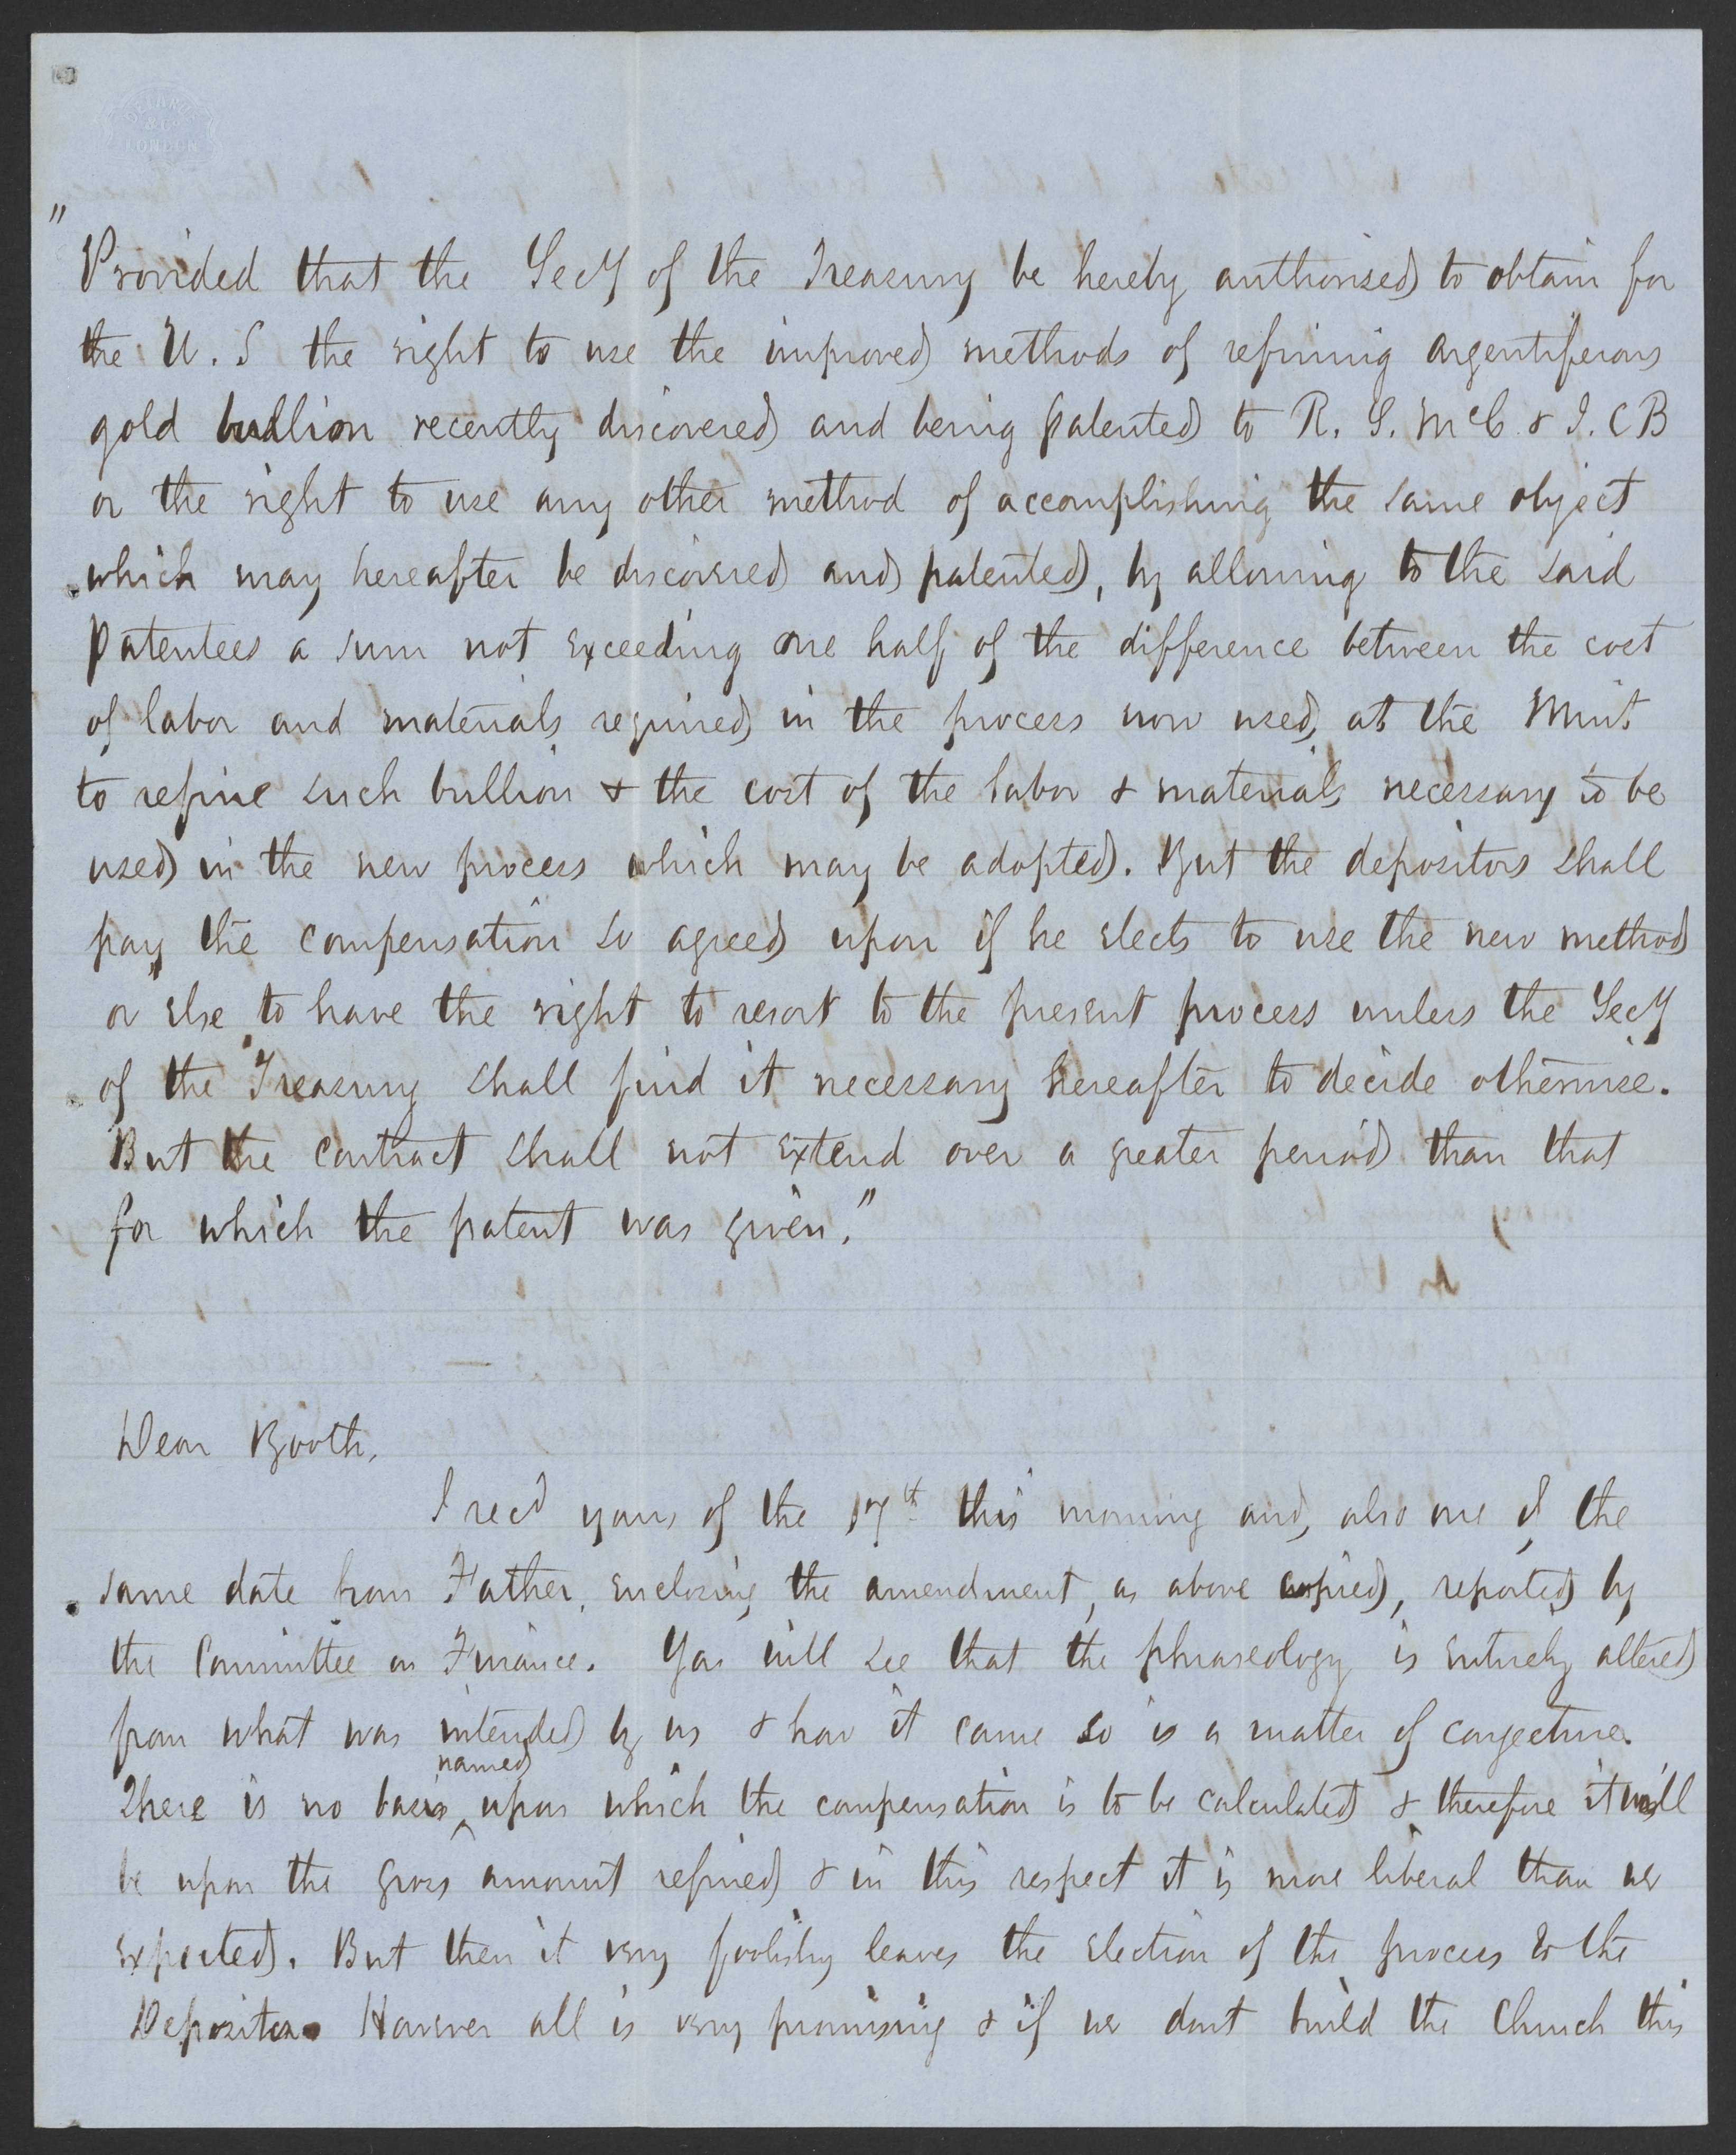 DELARUE
& Co
LONDON
"Provided that the Secy of the Treasury be hereby authorised to obtain for
the U. S the right to use the improved methods of refining argentiferous
gold bullion recently discovered and being patented to R. S. McC. & J. C B
or the right to use any other method of accomplishing the same object
which may hereafter be discovered and patented, by allowing to the said
Patentees a sum not exceeding one half of the difference between the cost
of labor and materials required in the process now used at the Mint
to refine such bullion & the cost of the labor & materials necessary to be
used in the new process which may be adopted. But the depositors shall
pay the compensation so agreed upon if he elects to use the new method
or else to have the right to resort to the present process unless the Secy
of the Treasury shall find it necessary hereafter to decide otherwise.
But the contract shall not extend over a greater period than that
for which the patent was given."
Dear Booth,
I recd yours of the 17th this morning and also one of the
same date from Father, enclosing the amendment, as above copied, reported by
the Committee on Finance. You will see that the phraseology is entirely altered
from what was intended by us & how it came so is a matter of conjecture.
There is no basis named upon which the compensation is to be calculated & therefore it will
be upon the gross amount refined & in this respect it is more liberal than we
expected. But then it very foolishly leaves the election of the process to the
Depositor. However all is very promising & if we dont build the Church this